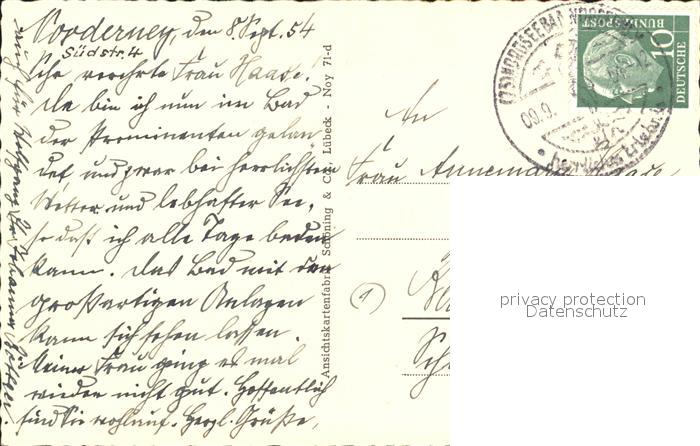 Norderney, den 8. Sept. 54
Südstr. 4
Sehr verehrte Frau Haase!
Da bin ich nun im Bad
der Prominenten gelan
det und zwar bei herrlichstem
Wetter und lebhafter See,
so daß ich alle Tage baden
kann. Das Bad mit den
großartigen Anlagen
kann sich sehen lassen.
Meiner Frau ging es mal
wieder nicht gut. Hoffentlich
sind Sie wohlauf. Herzl. Grüße,
auch für Wolfgang Ihr Johannes
Ansichtskartenfabrik Schöning & Co., Lübeck - Noy 71-d
An
Frau Annemarie
(1)
privacy protection
Datenschutz
NORDSEEBAD NORDERNEY
09.9.
DEUTSCHE
BUNDESPOST
10